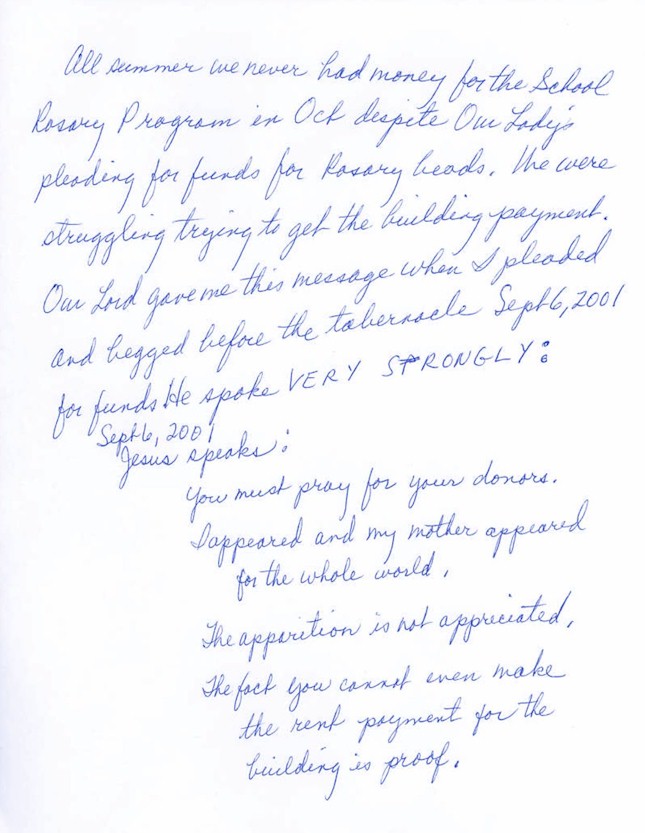 All summer we never had money for the School
Rosary Program in Oct despite Our Lady's
pleading for funds for Rosary beads. We were
struggling trying to get the building payment.
Our Lord gave me this message when I pleaded
and begged before the tabernacle Sept 6, 2001
for funds. He spoke VERY STRONGLY:
Sept 6, 2001
Jesus speaks:
You must pray for your donors.
I appeared and my mother appeared
for the whole world.
The apparition is not appreciated.
The fact you cannot even make
the rent payment for the
building is proof.